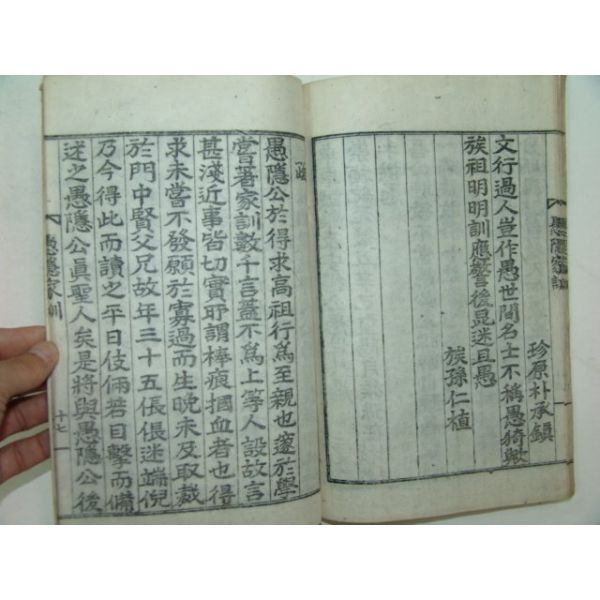 愚隱家訓
珍原朴承鎭
文行過人豈作愚世聞名士不稱愚猗歟
族祖明明訓應警後昆迷且愚
族孫仁植
跋
愚隱公於得求高祖行爲至親也邃於學
嘗著家訓數千言蓋不爲上等人設故言
甚淺近事皆切實耶謂棒痕摑血者也得
求未嘗不發願於寡過而生晩未及取裁
於門中賢父兄故年三十五倀倀迷端倪
乃今得此而讀之平日伎倆若目擊而備
述之愚隱公眞聖人矣是將與愚隱公後
愚隱家訓
十七